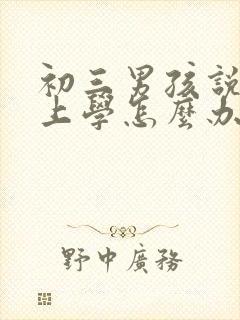 初三男孩說
上學怎麼办
野中廣務